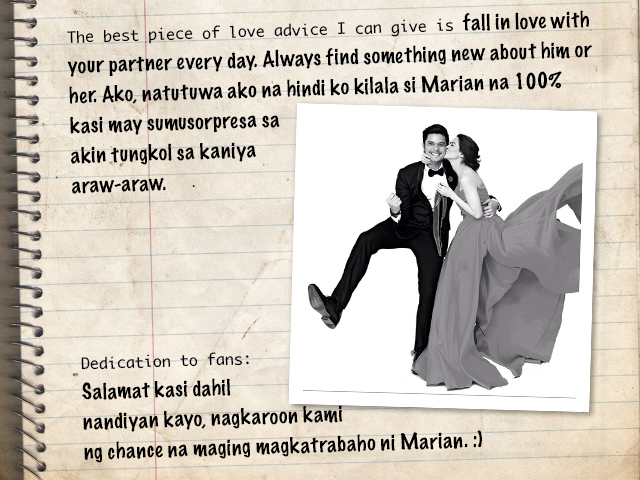 The best piece of love advice I can give is fall in love with
your partner every day. Always find something new about him or
her. Ako, natutuwa ako na hindi ko kilala si Marian na 100%
kasi may sumusorpresa sa
akin tungkol sa kaniya
araw-araw.
Dedication to fans:
Salamat kasi dahil
nandiyan kayo, nagkaroon kami
ng chance na maging magkatrabaho ni Marian. :)